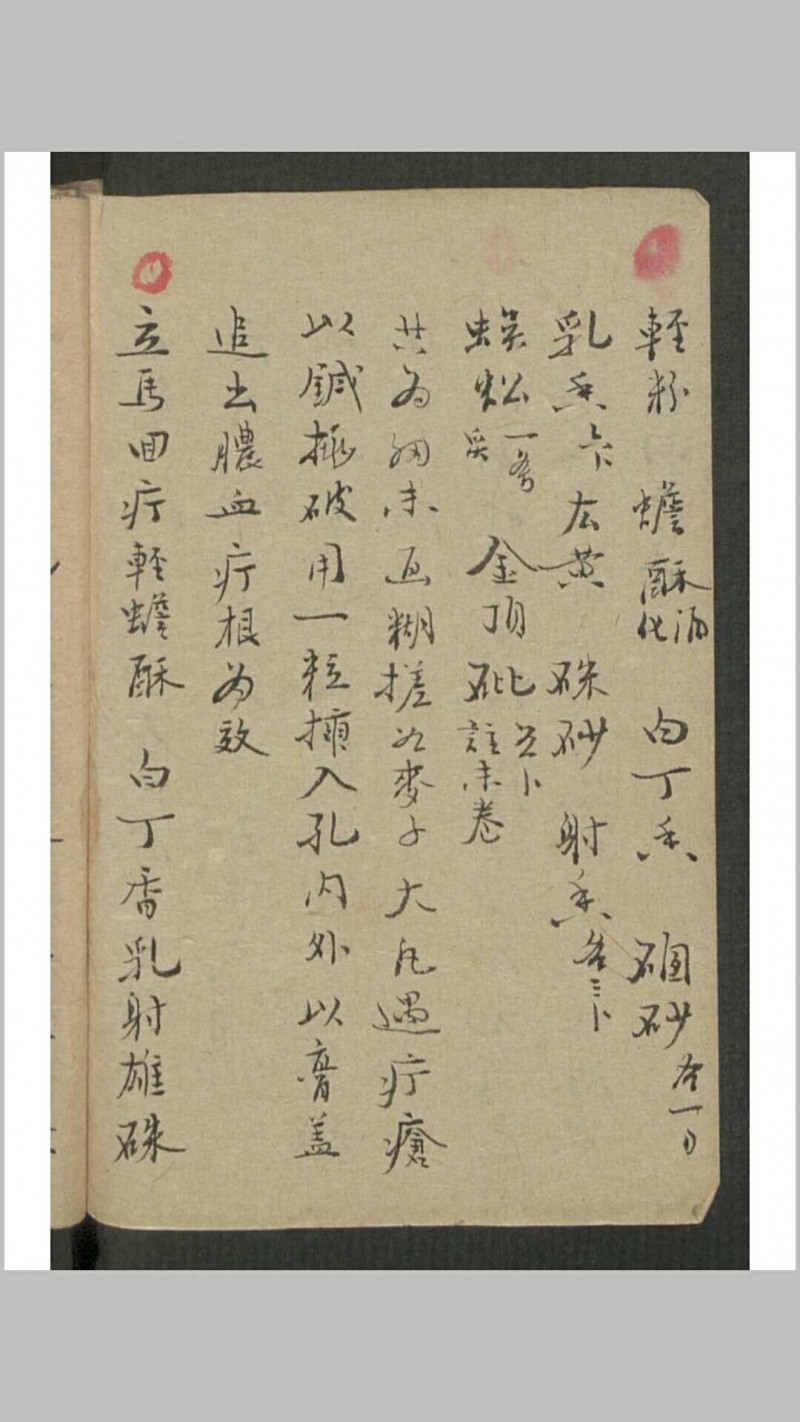 輕粉 蟾酥酒化 白丁香 硇砂各一
乳香六卜 雄黃 硃砂 射香各三卜
蜈蚣一條炙 金頂砒 註末卷
共為細末面糊搓如麥子大凡遇疔瘡
以鍼挑破用一粒插入孔內外以膏蓋
追出膿血疔根為效
立馬回疔輕蟾酥 白丁香乳射雄硃